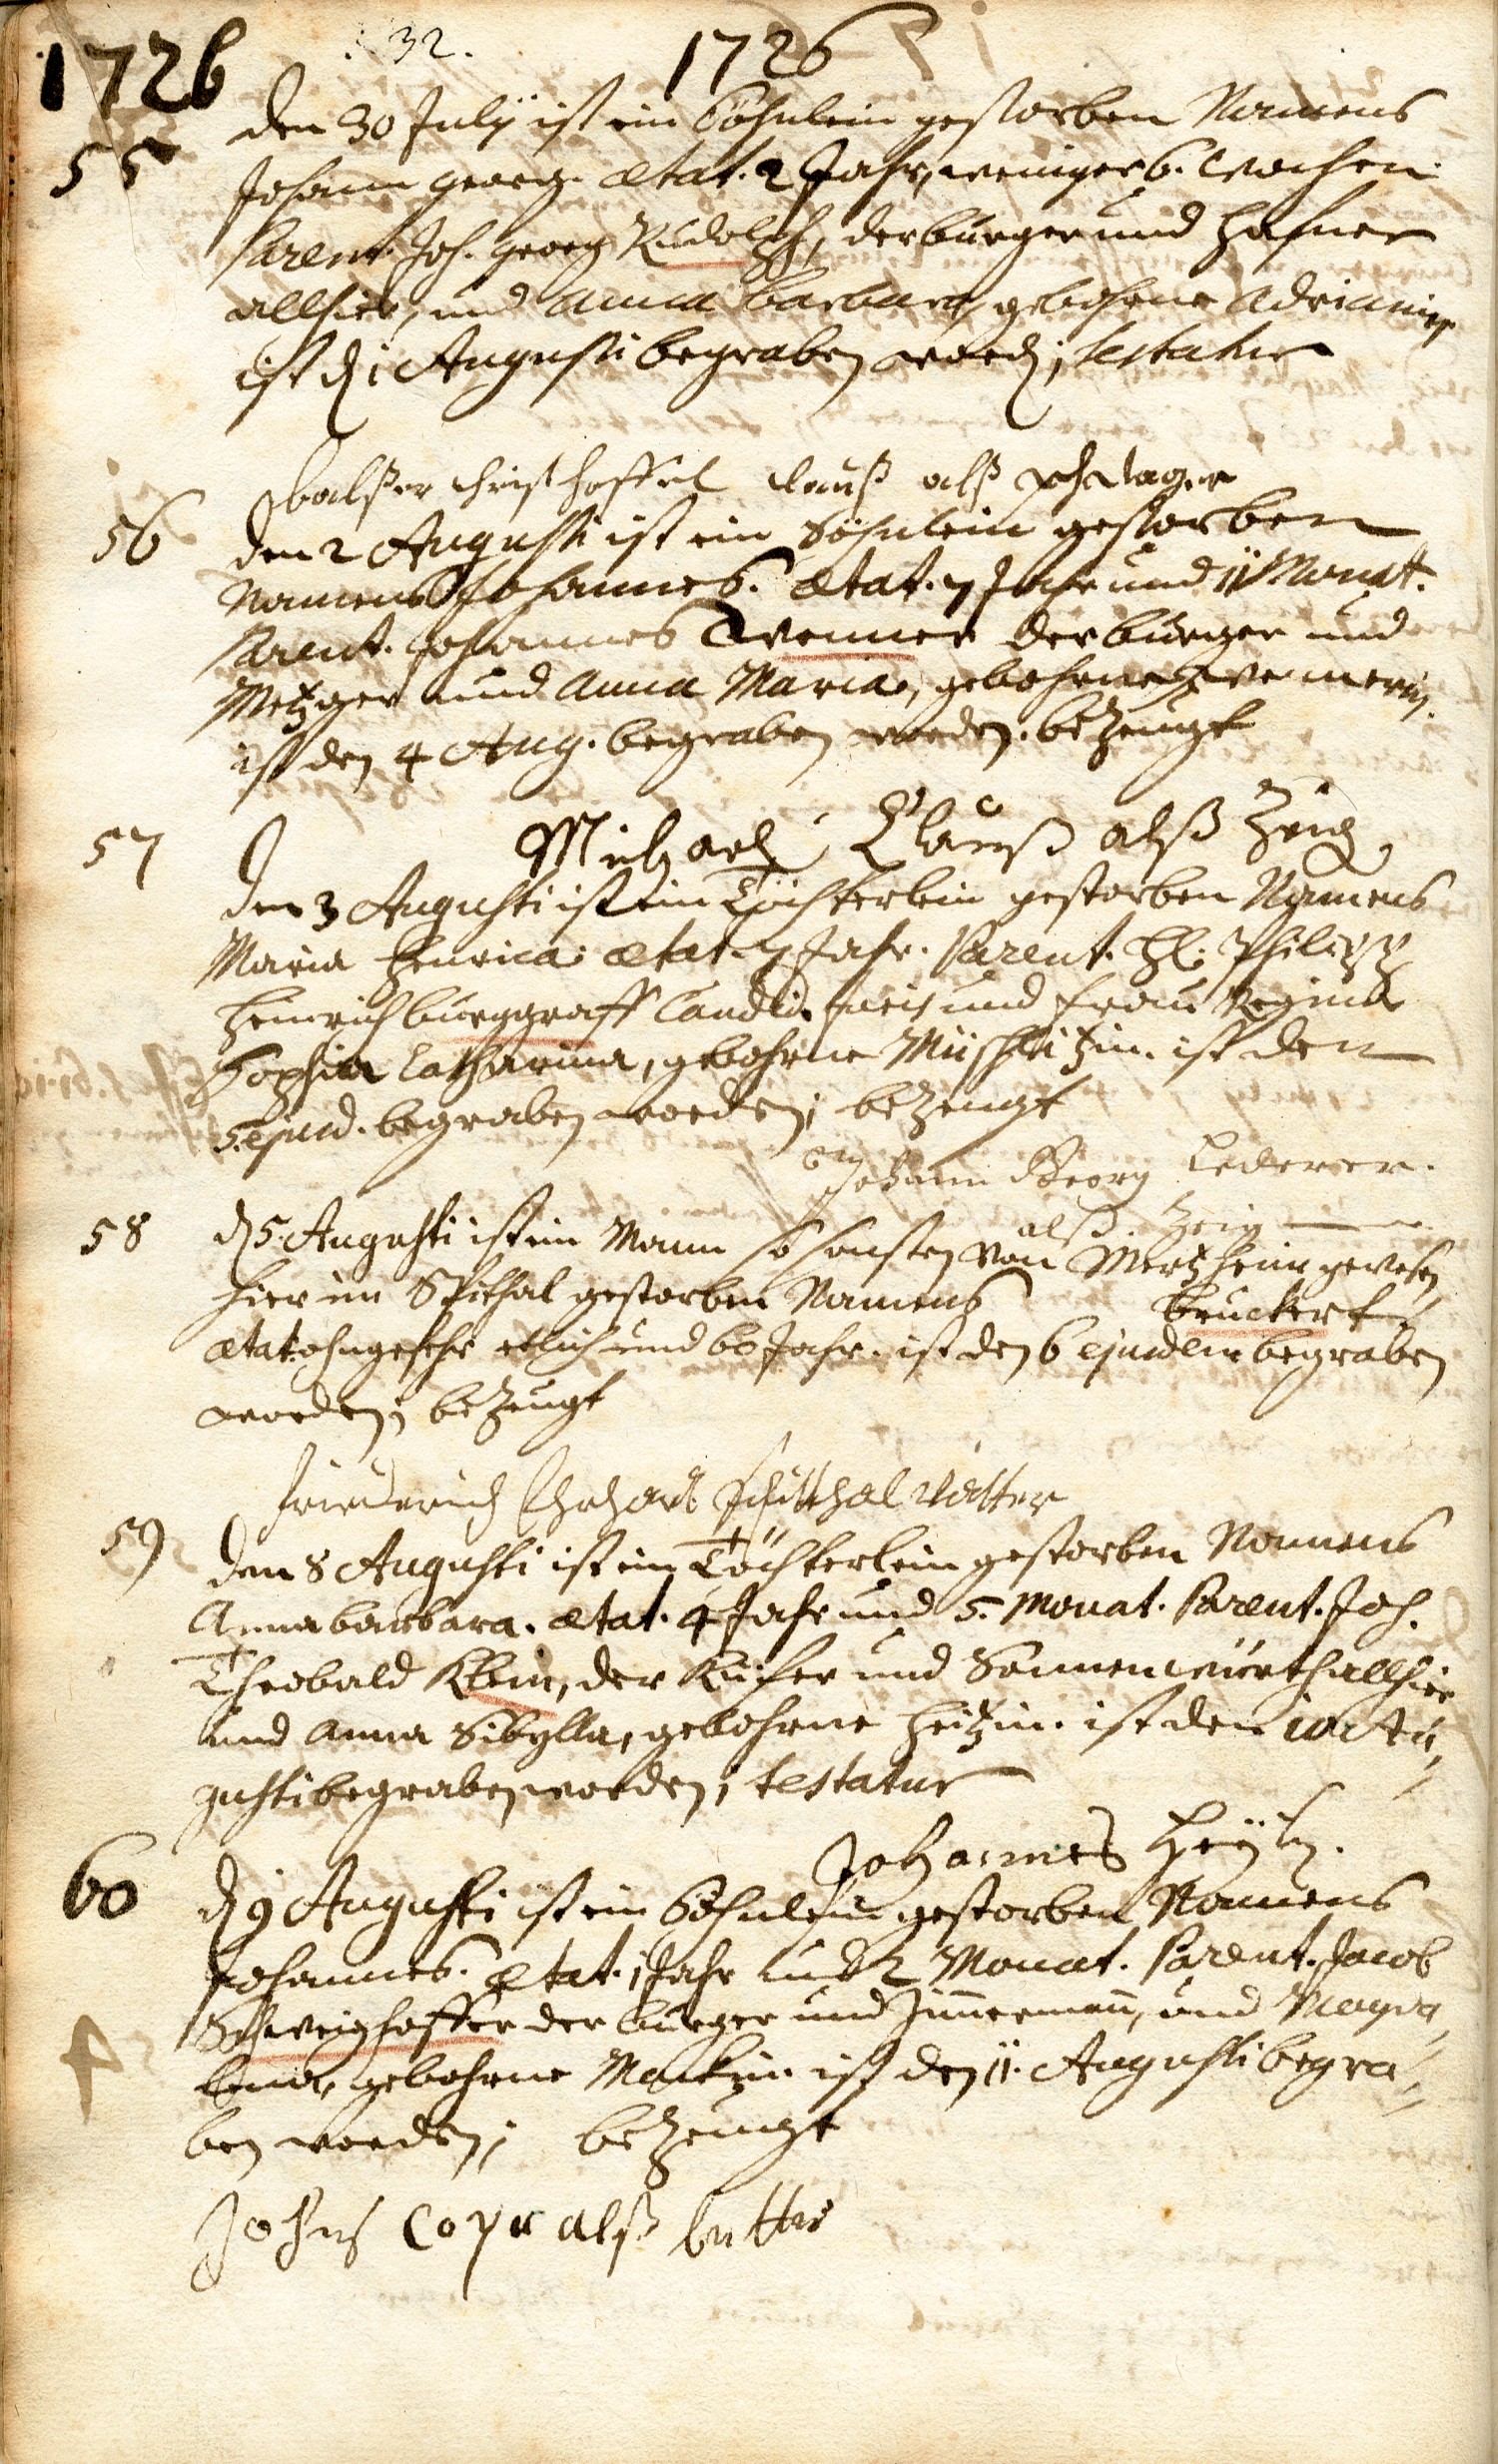 1726 32. 1726
55 den 30 Julÿ ist ein Söhnlein gestorben Namens
Johann Georg. ætat. 2 Jahr, weniger 6. Wochen.
Parent. Joh. Georg Rudolph, der burger und Hafner
allhier, und Anna Barbara, gebohrne Adrianin
ist d. 1 Augusti begraben word; testatur
balßer Christhoffel Clauß alß
56 den 2 Augusti ist ein Söhnlein gestorben
Namens Johannes. ætat. 7 Jahr und 11 Monat.
Parent. Johannes Wenner der burger und
Metzger und Anna Maria, gebohrne
ist den 4 Aug. begraben worden. bezeugt
57 Michael Clauß alß Zeig
den 3 Augusti ist ein Töchterlein gestorben Namens
Maria Henrica. ætat. 7 Jahr. Parent. H. Philipp
Heinrich burggraff Candid. Juris und Frau Regina
Sophia Catharina, gebohrne ist den
5. ejusd. begraben worden; bezeugt
Johann Georg Lederer.
alß. Zeig
58 d. 5. Augusti ist ein Mann so sonsten von Mertzheim gewesen
hier im Spithal gestorben Namens bruckert
ætat. ohngefehr etlich und 60 Jahr. ist den 6 ejusdem begraben
worden; bezeugt
Friederich Ehrhart Spitthal Vatter
59 den 8 Augusti ist ein Töchterlein gestorben Namens
Anna barbara. ætat. 4 Jahr und 5. Monat. Parent. Joh.
Theobald Klein, der Kiefer und Sonnenwürth allhier
und Anna Sibylla, gebohrne Heitzin. ist den 10 Au-
gusti begraben worden; testatur
Johannes
60 d. 9 Augusti ist ein Söhnlein gestorben Namens
Johannes. ætat. 1 Jahr und 2 Monat. Parent. Jacob
Schweighoffer der burger und Zimmermann, und Magda-
lena, gebohrne ist den 11. Augusti begra-
ben worden; bezeugt
Johns alß